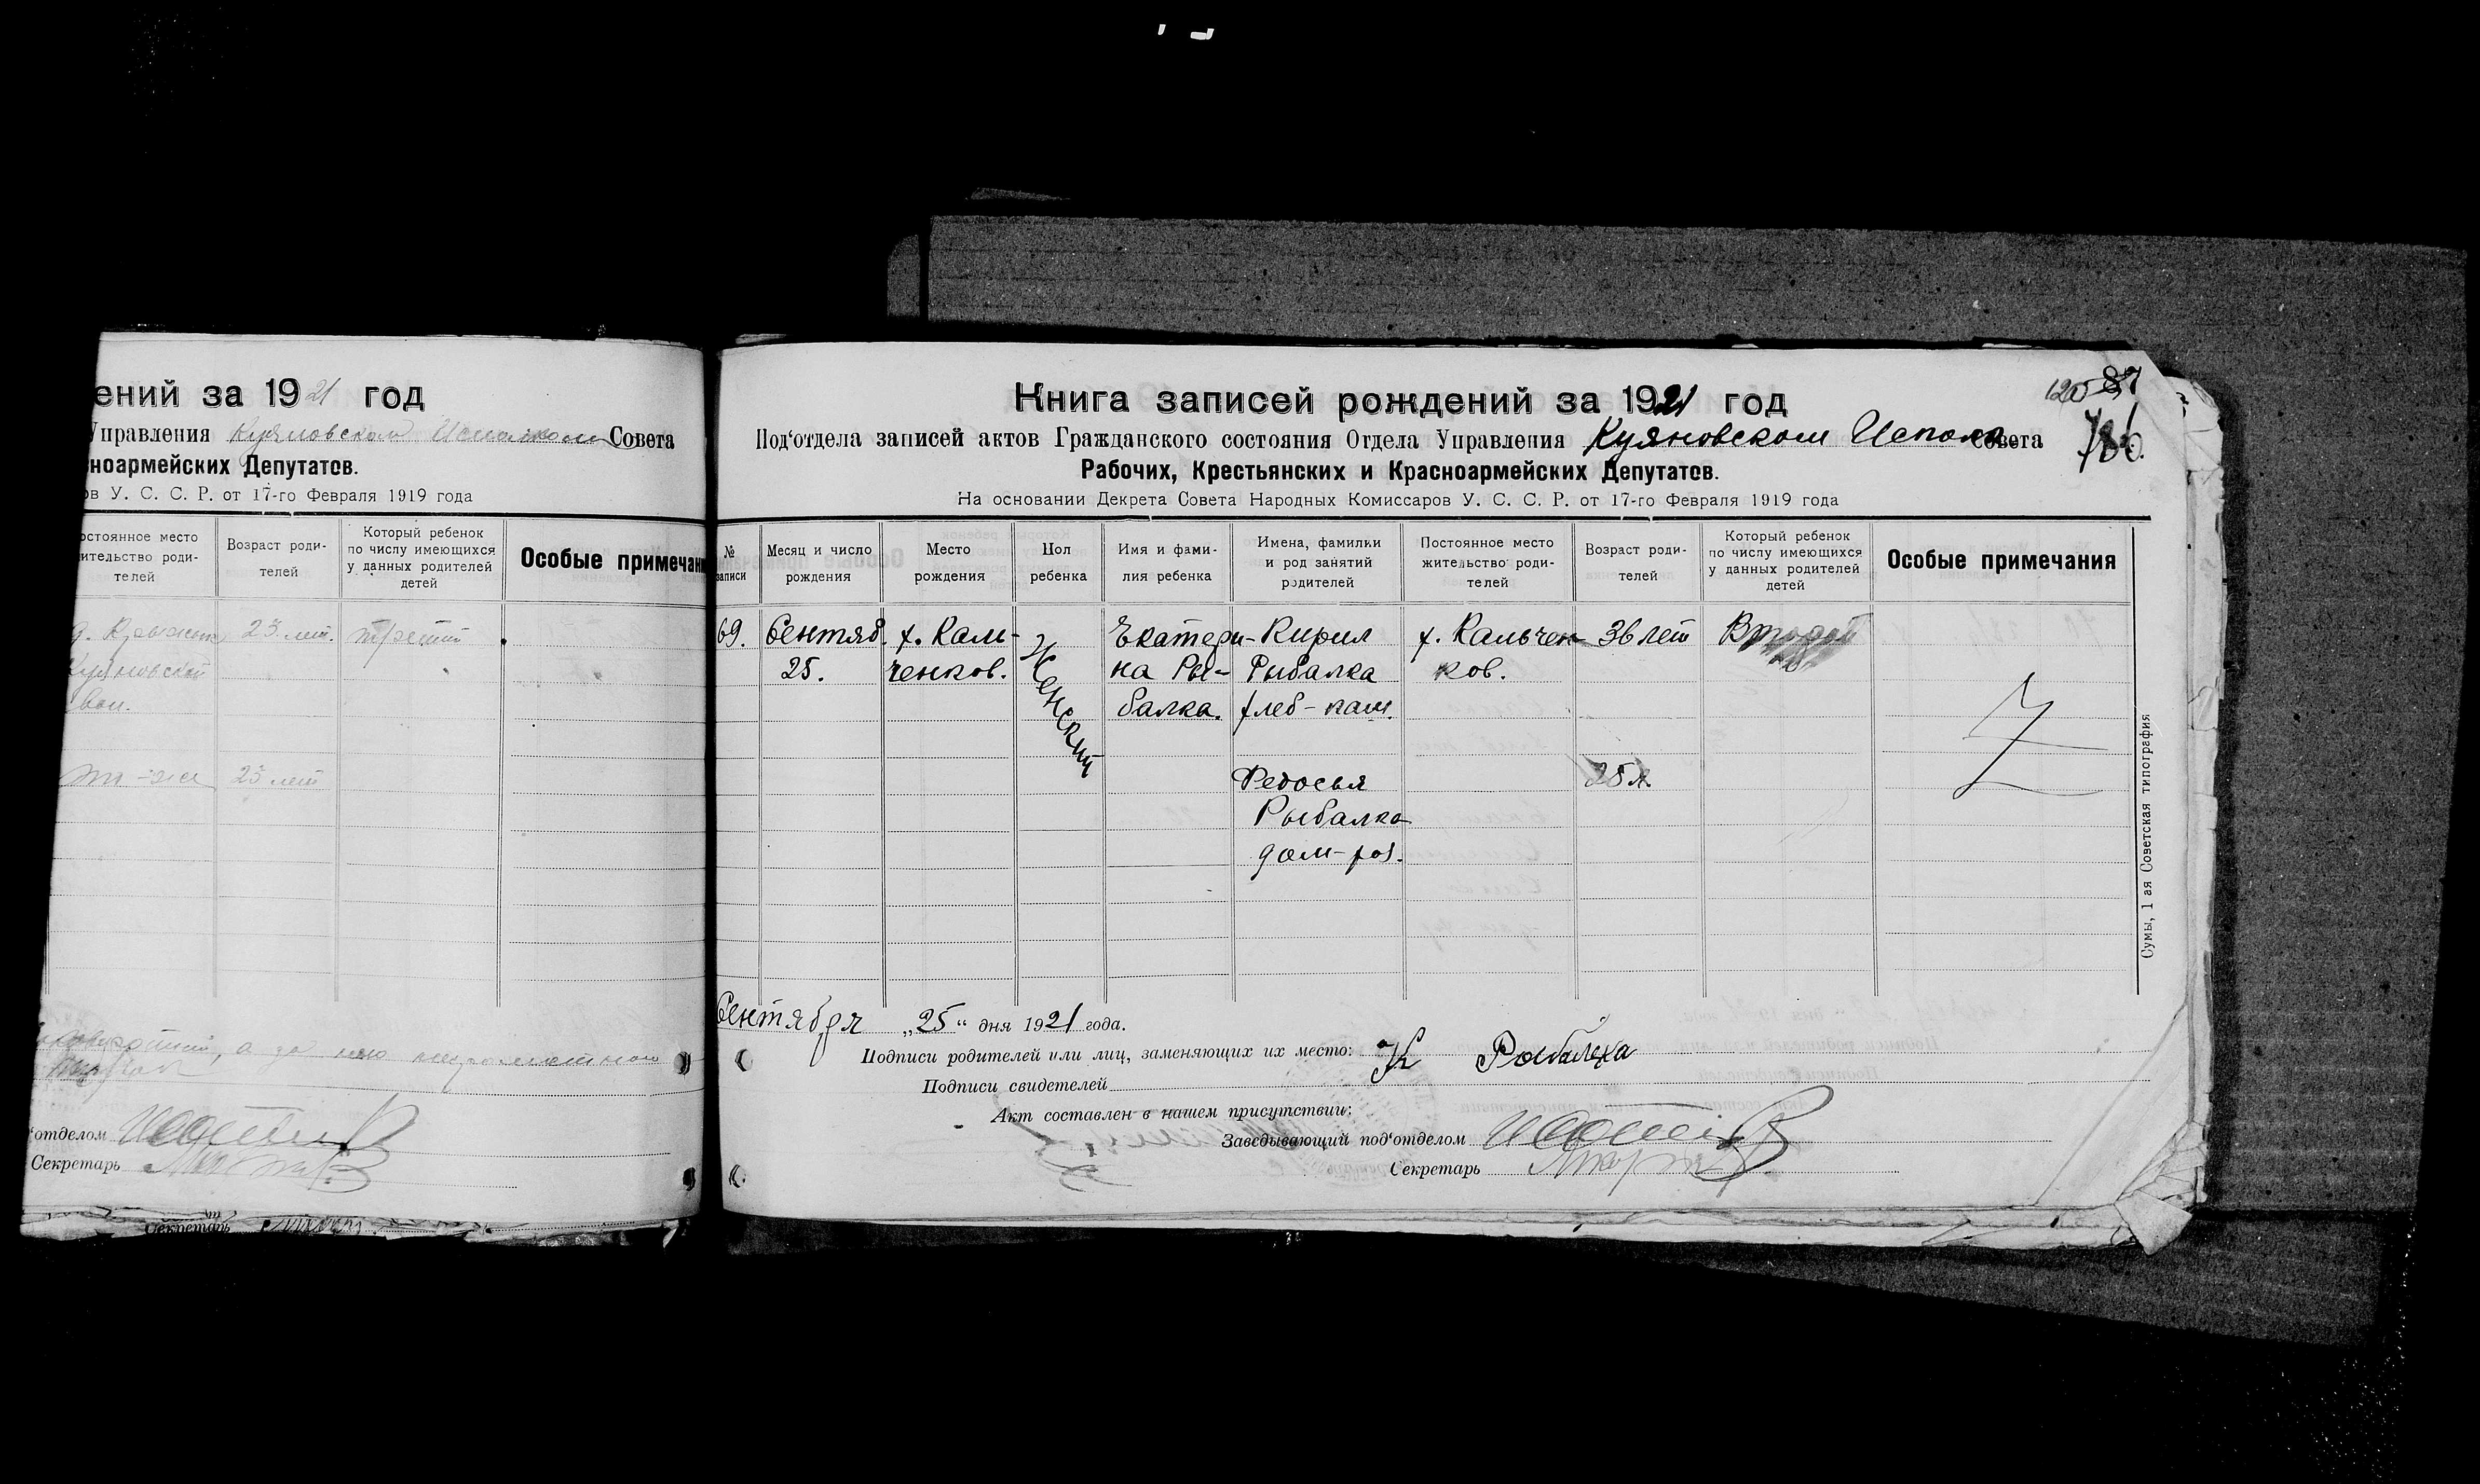 ений за 1921 год
Управления Куяновском Исполком Совета
ноармейских Депутатов.
ов У. С. С. Р. от 17-го Февраля 1919 года
остоянное место
ительство роди-
телей
Возраст роди-
телей
Который ребенок
по числу имеющихся
у данных родителей
детей
Особые примечан
23 лет. третий
Куяновской
вол.
25 лет
а за нею
отделом
Секретарь
Секретарь
Книга записей рождений за 1921 год
120 87
Под'отдела записей актов Гражданского состояния Отдела Управления Куяновском Исполк. Совета
Рабочих, Крестьянских и Красноармейских Депутатов.
На основании Декрета Совета Народных Комиссаров У. С. С. Р. от 17-го Февраля 1919 года
№
записи
Месяц и число
рождения
Место
рождения
Пол
ребенка
Имя и фами-
лия ребенка
Имена, фамилии
и род занятий
родителей
Постоянное место
жительство роди-
телей
Возраст роди-
телей
Который ребенок
по числу имеющихся
у данных родителей
детей
Особые примечания
69.
Сентяб.
25.
х. Каль-
ченков.
Женский
Екатери-
на Ры-
балка.
Кирил
Рыбалка
хлеб-паш.
Федосья
Рыбалка
дом-хоз.
х. Кальчен-
ков.
36 лет
25 л.
Второй
Сумы, 1 ая Советская типография
Сентября „25“ дня 1921 года.
Подписи родителей или лиц, заменяющих их место: К Рыбалка
Подписи свидетелей
Акт составлен в нашем присутствии:
Заведывающий под'отделом
Секретарь